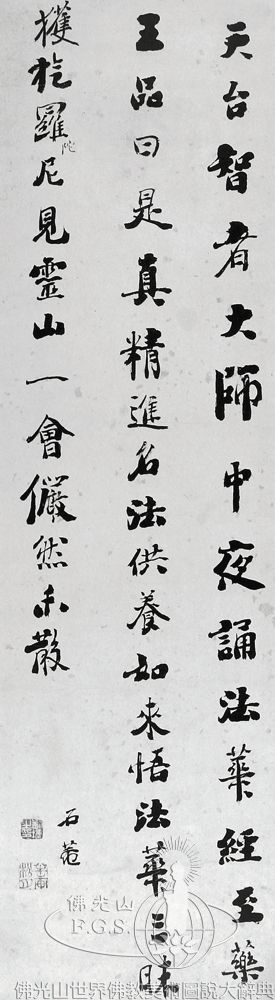 天台智者大師中夜誦法華經至藥
王品曰是真精進名法供養如來悟法華三昧
獲旋羅尼見靈山一會儼然未散
陀
石菴
佛光山
F.G.S.
佛光山世界佛教美術圖說大辭典